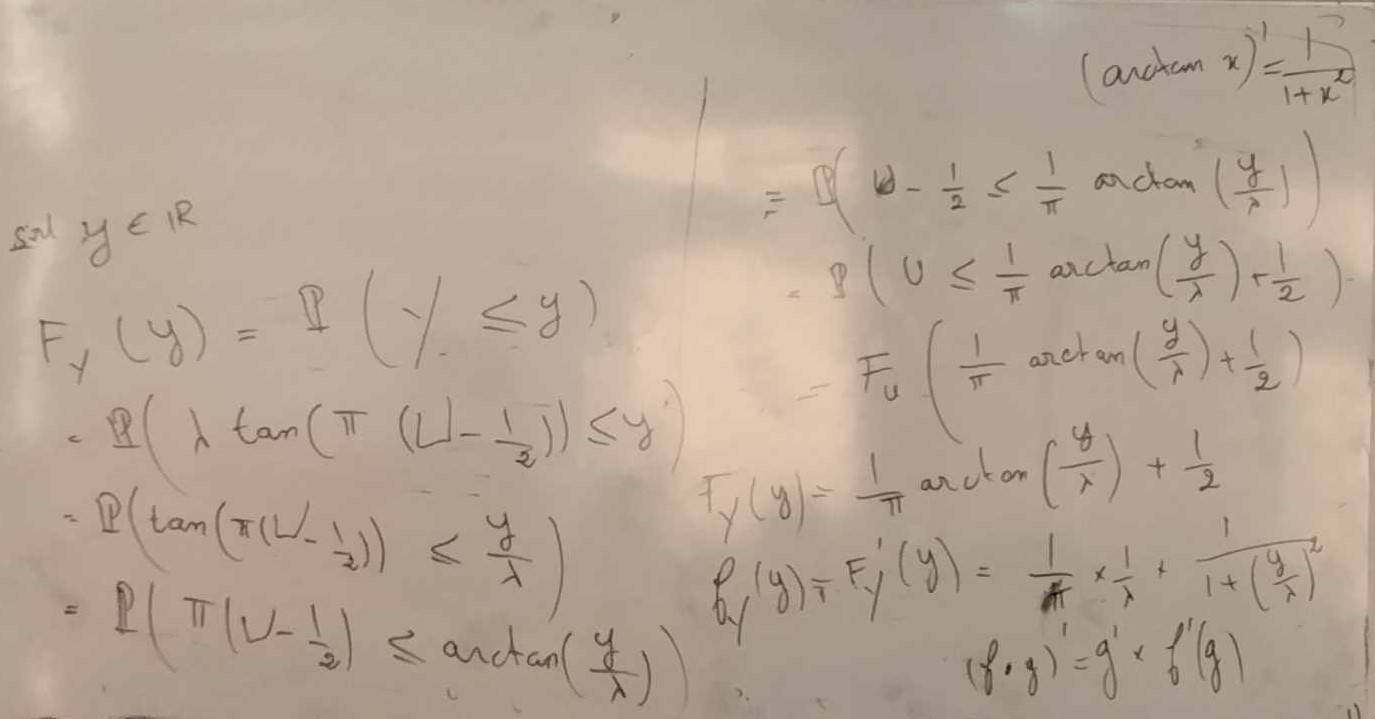 soit y ∈ ℝ
F_Y (y) = ℙ ( Y ≤ y )
= ℙ( λ tan( π (U - 1/2)) ≤ y )
= ℙ( tan( π(U - 1/2)) ≤ y/λ )
= ℙ( π(U - 1/2) ≤ arctan( y/λ ) )
(arctan x)' = 1/(1+x²)
= ℙ( U - 1/2 ≤ 1/π arctan ( y/λ ) )
= ℙ( U ≤ 1/π arctan( y/λ ) + 1/2 )
= F_U ( 1/π arctan( y/λ ) + 1/2 )
F_Y(y) = 1/π arctan( y/λ ) + 1/2
f_Y(y) = F_Y'(y) = 1/π × 1/λ × 1/(1+(y/λ)²)
(f∘g)' = g' × f'(g)